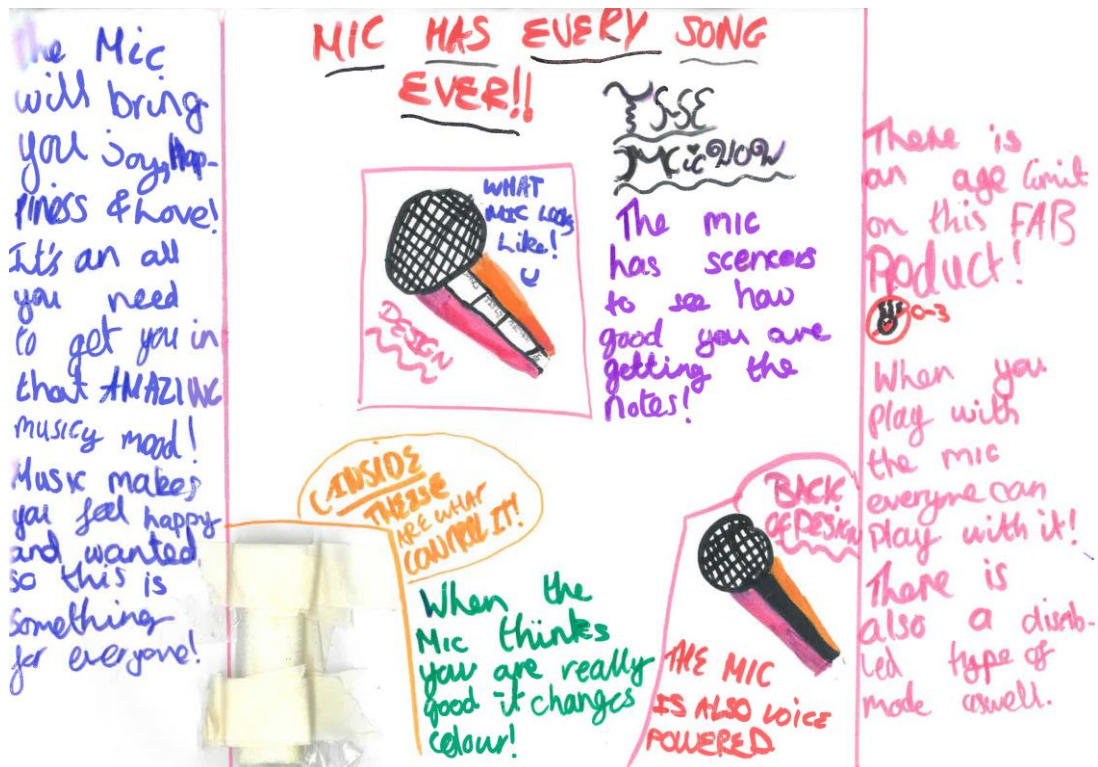 The Mic
will bring
you Joy, Hap-
piness & Love!
It's an all
you need
to get you in
that AMAZING
musicy mood!
Music makes
you feel happy
and wanted
so this is
something
for everyone!
MIC HAS EVERY SONG
EVER!!
WHAT
MIC LOOKS
Like!
DESIGN
The mic
has scencors
to see how
good you are
getting the
notes!
INSIDE
THESE
ARE WHAT
CONTROL IT!
When the
Mic thinkes
you are really
good it changes
colour!
BACK
OF DESIGN
THE MIC
IS ALSO VOICE
POWERED
There is
an age limit
on this FAB
Poduct!
0-3
When you
play with
the mic
everyone can
play with it!
There is
also a disab-
led type of
mode aswell.